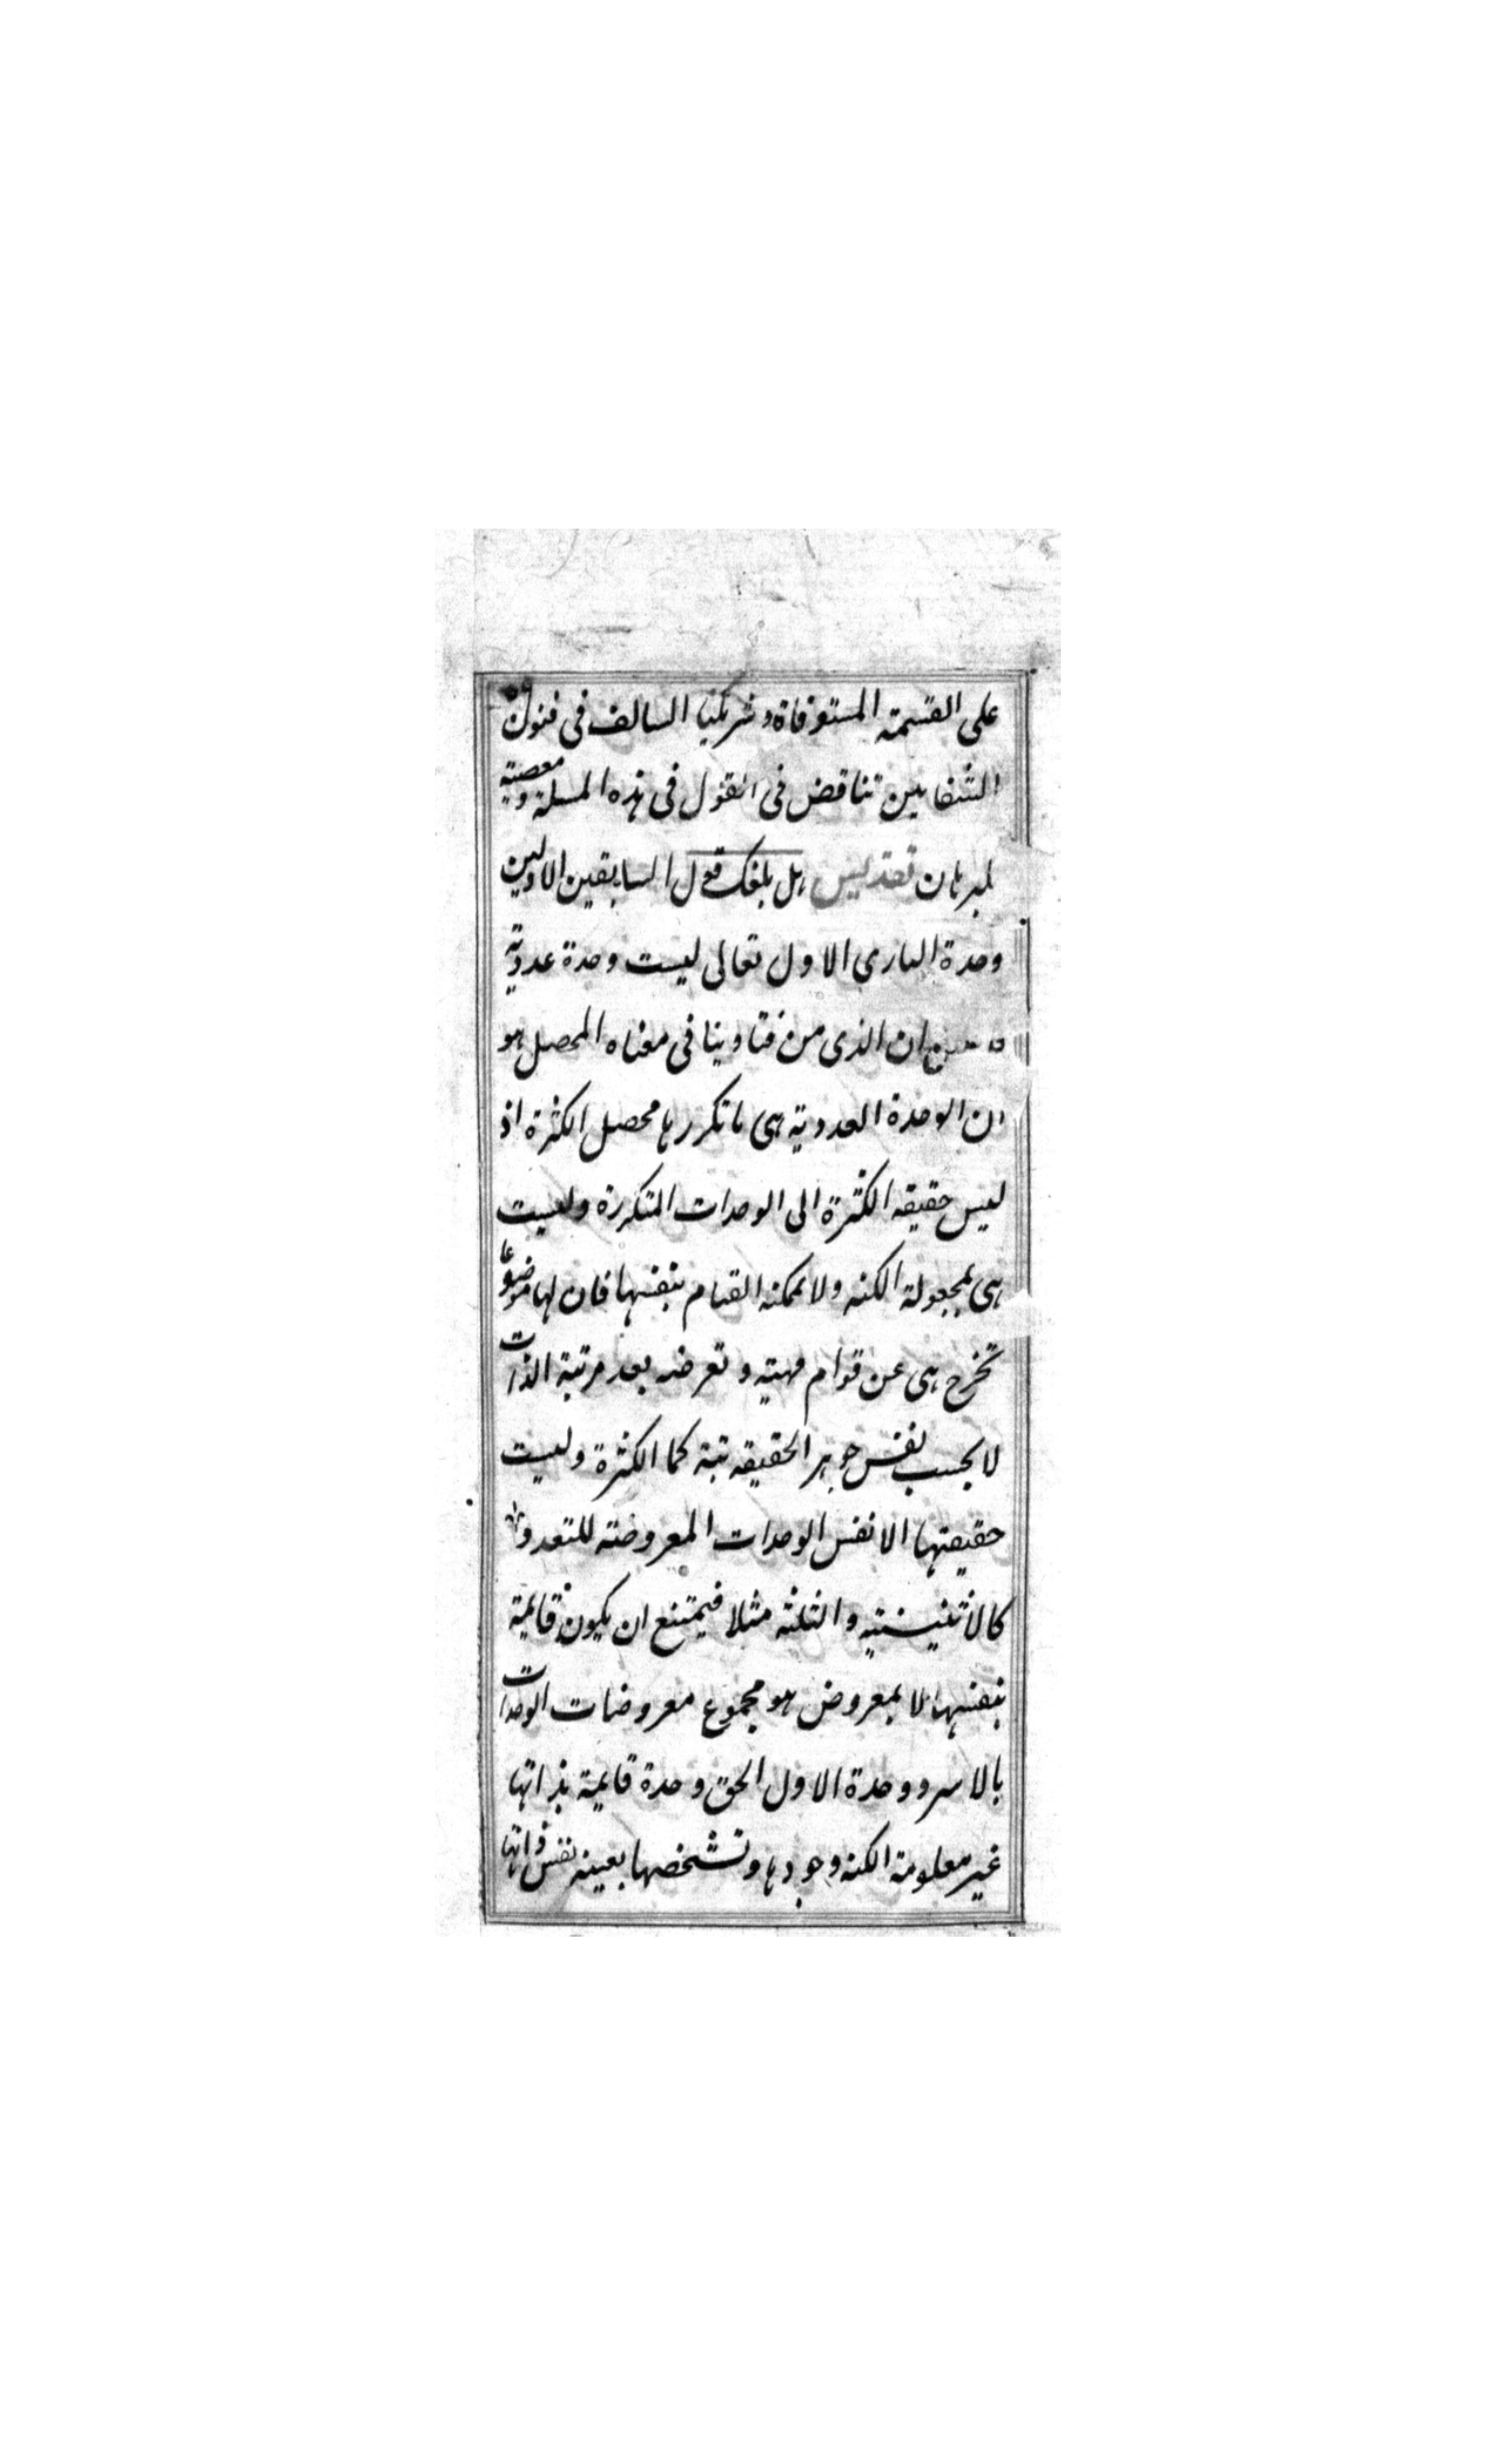 على القسمة المستوفاة وشريكنا السالف في فنون
الشفا بين تناقض في القول في هذه المسلة ومعصية
لبرهان تقديس هل بلغك قول السابقين الاولين
وحدة البارى الاول تعالى ليست وحدة عددية
ان الذى من فتاوينا في معناه المحصل هو
ان الوحدة العددية هى ما تكررها محصل الكثرة اذ
ليس حقيقه الكثرة الى الوحدات المتكررة وليست
هى بمجعولة الكنه ولا يمكنه القيام بنفسها فان لها موضوعا
تخرج هى عن قوام مهيته وتعرضه بعد مرتبة الذات
لا بحسب نفس جوهر الحقيقه بتة كما الكثرة وليست
حقيقتها الا نفس الوحدات المعروضته للتعدد
كالاثنينية والثلثه مثلا فيمتنع ان يكون قايمة
بنفسها لا بمعروض هو مجموع معروضات الوحدات
بالاسر ووحدة الاول الحق وحدة قايمة بذاتها
غير معلومة الكنه وجودها وتشخصها بعينه نفس ذاتها